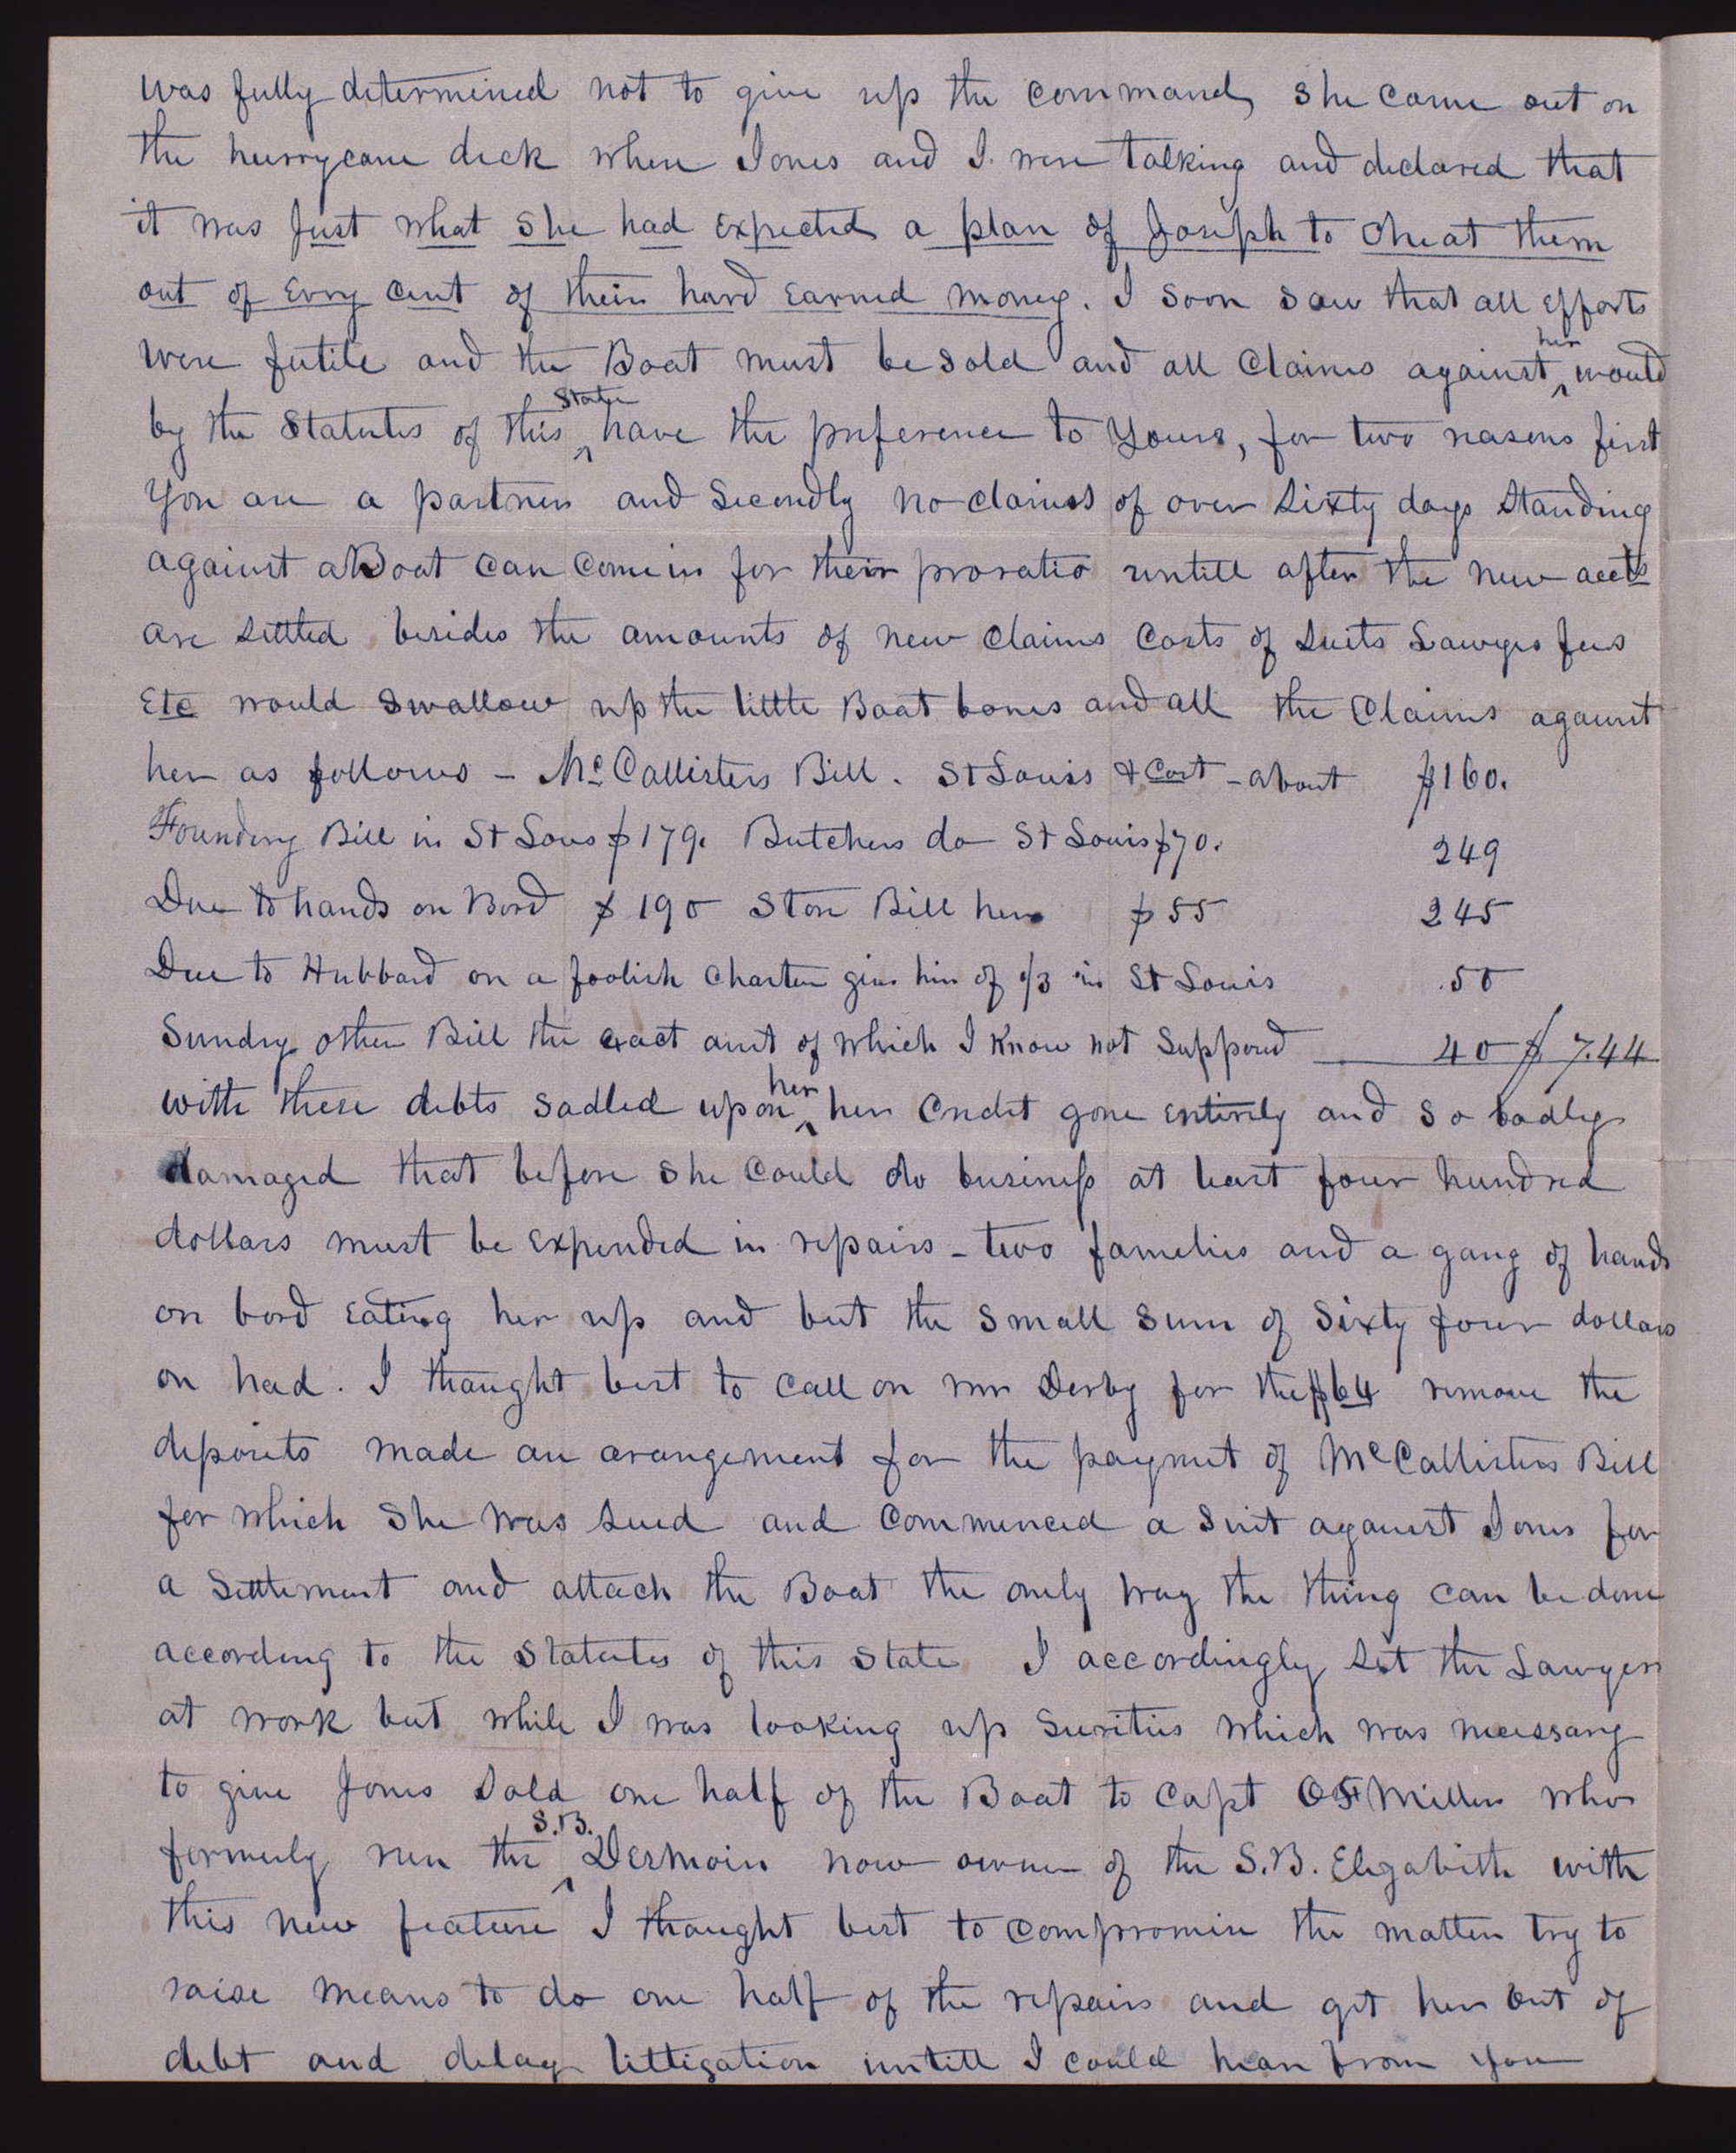 was fully determined not to give up the command, she came out on
the hurrycane deck where Jones and I were talking and declared that
it was just what she had expected a plan of Joseph to cheat them
out of Evry cent of their hard earned money. I soon saw that all efforts
were futile and the Boat must be sold and all Claims against her would
by the Statutes of this State have the preference to Yours, for two reasons first
You are a partner and Secondly no claims of over Sixty days Standing
against a Boat can come in for their proratio untill after the new accts
are settled besides the amounts of new Claims Costs of Suits Lawyers fees
Etc would swallow up the little Boat bones and all the Claims against
her as follows - McCallisters Bill. St Louis & Cost - about $160.
Foundry Bill in St Lous $179. Butchers do St Louis $70. 249
Due to hands on Bord $190 Store Bill here $55 245
Due to Hubbard on a foolish Charter give him of 1/3 in St Louis .50
Sundry other Bill the exact amt of which I know not Supposed 40 $ 7.44
with these debts sadled upon her her Credit gone entirely and so badly
damaged that before she could do business at least four hundred
dollars must be Expended in repairs - two families and a gang of hands
on bord Eating her up and but the small sum of Sixty four dollars
on had. I thaught best to call on mr Derby for the $64 remove the
deposits made an arangement for the paymet of McCallisters Bill
for which she was sued and Commenced a Suit against Jones for
a settlement and attach the Boat the only way the thing can be done
according to the Statutes of this State I accordingly set the Lawyers
at work but while I was looking up Surities which was necessary
to give Jones Sold one half of the Boat to Capt Miller who
formerly run the S.B. Desmoin now owner of the S.B. Elizabeth with
this new feature I thaught best to compromise the matter try to
raise means to do one half of the repairs and get her out of
debt and delay littigation untill I could hear from you